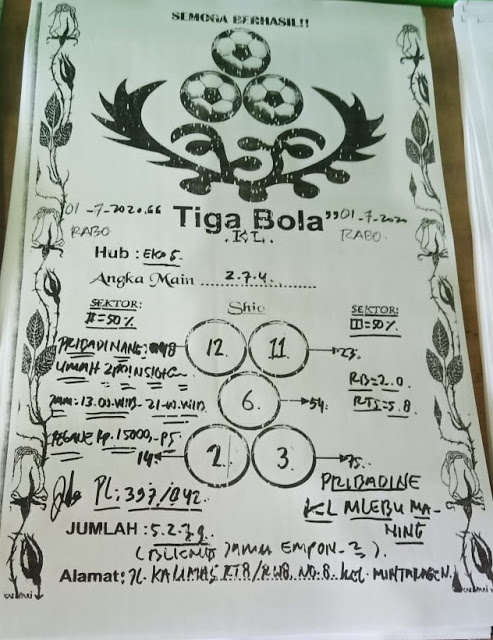 SEMOGA BERHASIL!!
01-7-2020.
Tiga Bola"
01-7-2020
RABO
.KL.
RABO.
Hub : EKO
Angka Main 2.7.4.
SEKTOR:
Shio
SEKTOR:
II=50%
III=50%
12.
11
23.
6.
54.
JAM: 13.00 WIB - 21.00 WIB
RB=2.0
RTS=5.8
Rp. 15000,-
14
2.
3
75.
PRIBADINE
KL MLEBU MA-
NING
PL: 397/842.
JUMLAH : 5.2.7.9
JAMU EMPON-2).
Alamat: JL KALIMAS RT8/RW8. NO.8.